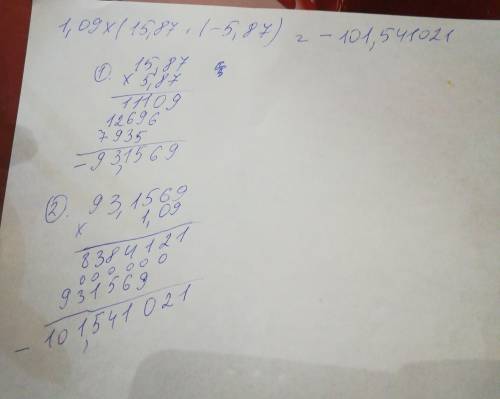 1,09 x (15,87 · (-5,87) = -101,541021
1. 15,87
x 5,87
11109
12696
7935
-93,1569
2. 93,1569
x 1,09
8384121
000000
931569
-101,541021